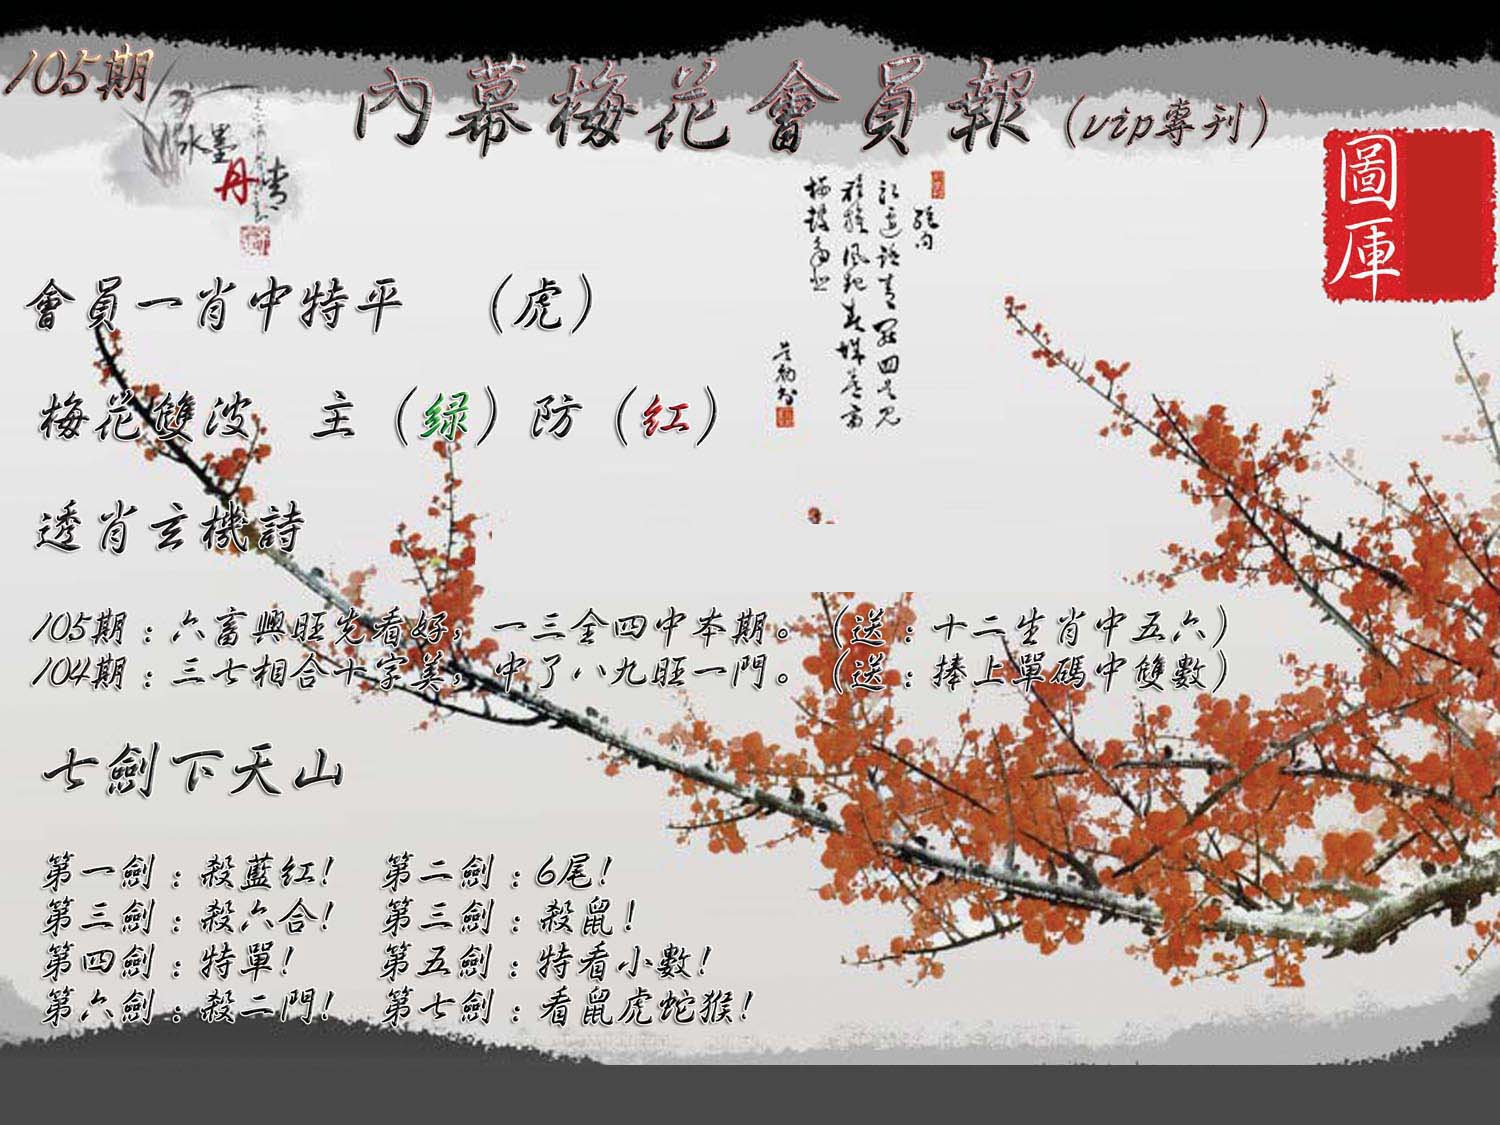 105期
內幕梅花會員報(vip專刊)
水墨
丹青
圖庫
會員一肖中特平 （虎）
梅花雙波 主（绿）防（红）
透肖玄機詩
105期：六畜興旺先看好，一三金四中本期。（送：十二生肖中五六）
104期：三七相合十字美，中了八九旺一門。（送：捧上單碼中雙數）
七劍下天山
第一劍：殺藍红! 第二劍：6尾!
第三劍：殺六合! 第三劍：殺鼠!
第四劍：特單! 第五劍：特看小數!
第六劍：殺二門! 第七劍：看鼠虎蛇猴!